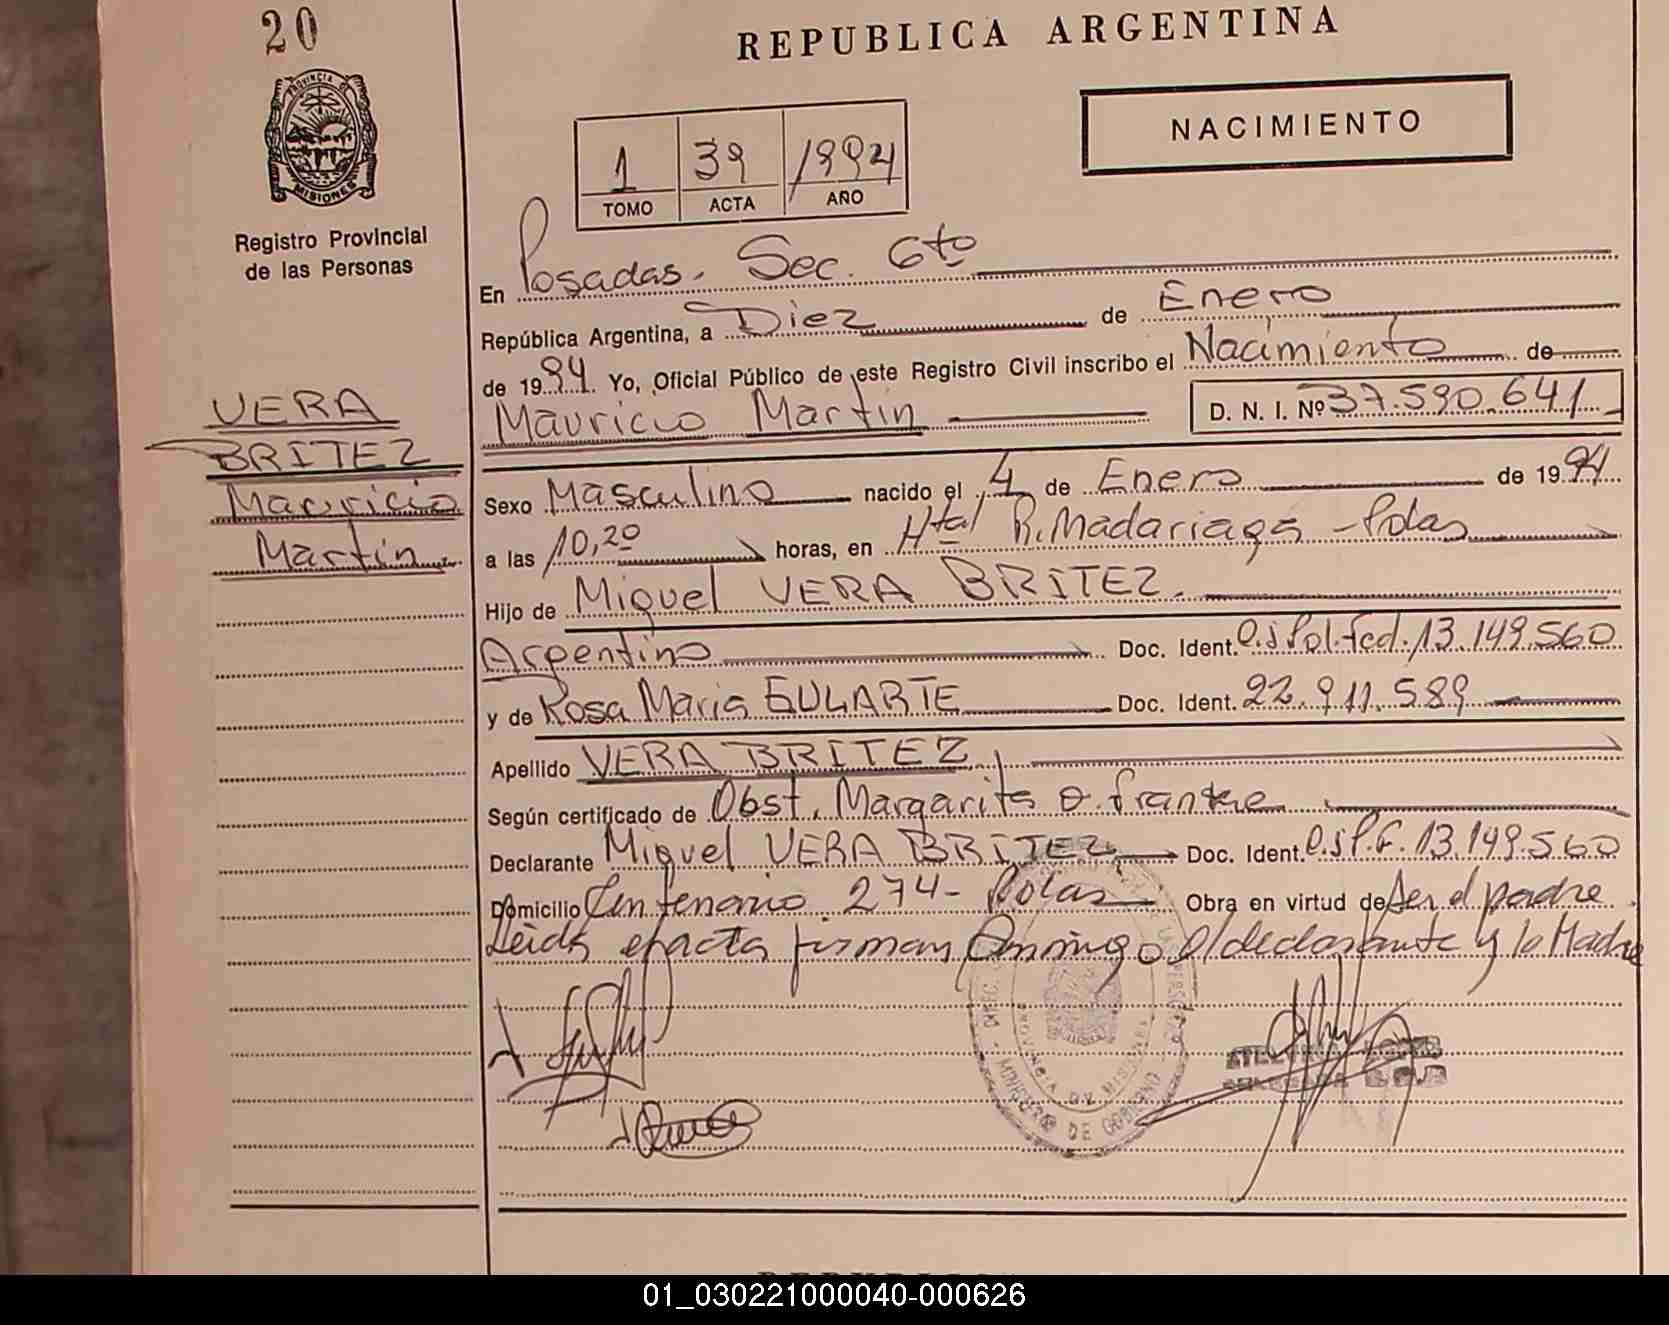 20
REPUBLICA ARGENTINA
PROVINCIA DE
MISIONES
NACIMIENTO
1 39 1994
TOMO ACTA AÑO
Registro Provincial
de las Personas
En Posadas. Sec. 6to
República Argentina, a Diez de Enero
de 1994. Yo, Oficial Público de este Registro Civil inscribo el Nacimiento de
Mauricio Martin D. N. I. Nº 37.590.641
VERA
BRITEZ
Mauricio
Martin
Sexo Masculino nacido el 4 de Enero de 1994
a las 10,20 horas, en Htal R. Madariaga - Pdas
Hijo de Miguel VERA BRITEZ.
Argentino Doc. Ident. C.I Pol. Fed. 13.149.560
y de Rosa Maria GULARTE Doc. Ident. 22.911.589
Apellido VERA BRITEZ
Según certificado de Obst. Margarita O.
Declarante Miguel VERA BRITEZ Doc. Ident. C.I P.F. 13.149.560
Domicilio Centenario 274 - Pdas Obra en virtud de Ser el padre
Leida el acta firman conmigo el declarante y la Madre
PROVINCIA DE MISIONES
DE GOBIERNO
01_030221000040-000626